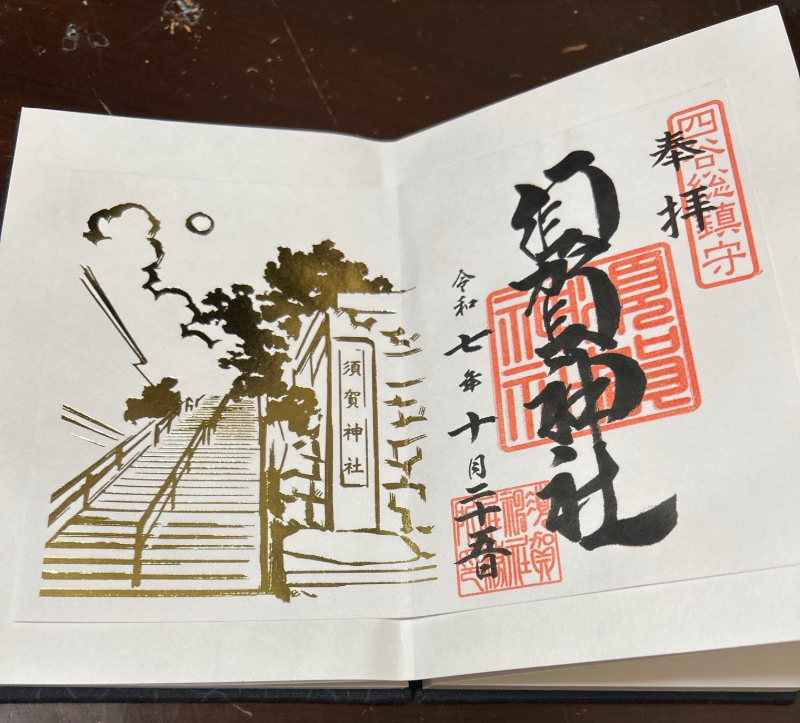 四谷総鎮守
奉拝
須賀神社
須賀
神社
令和七年十月二十五日
須賀
神社
須賀神社